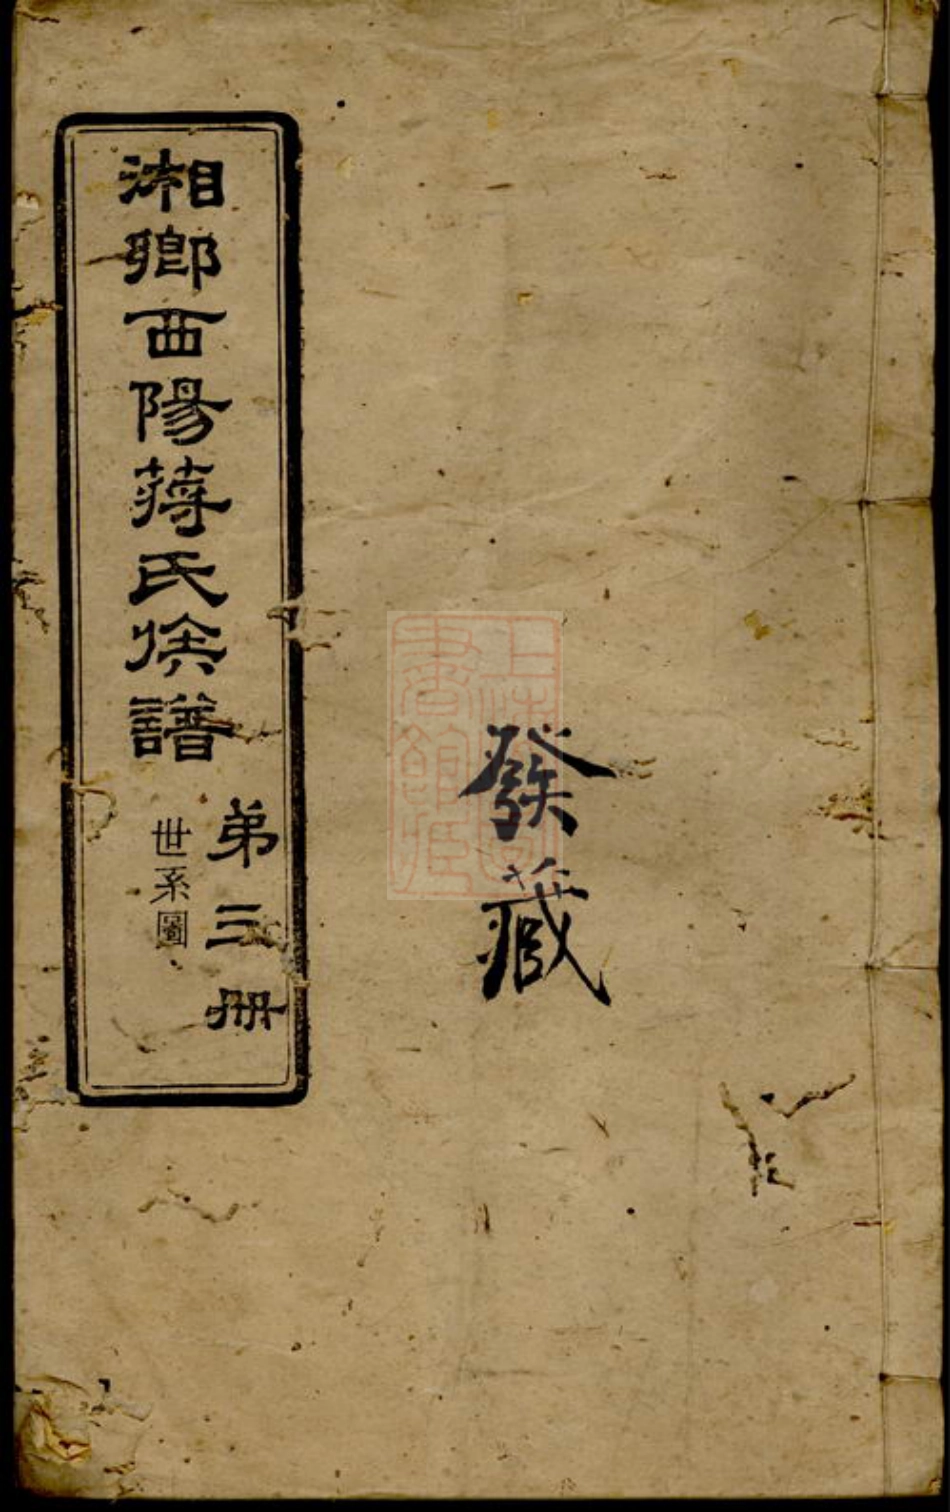 發藏
上海圖
書館藏
湘鄉西陽蔣氏族譜
弟三冊
世系圖